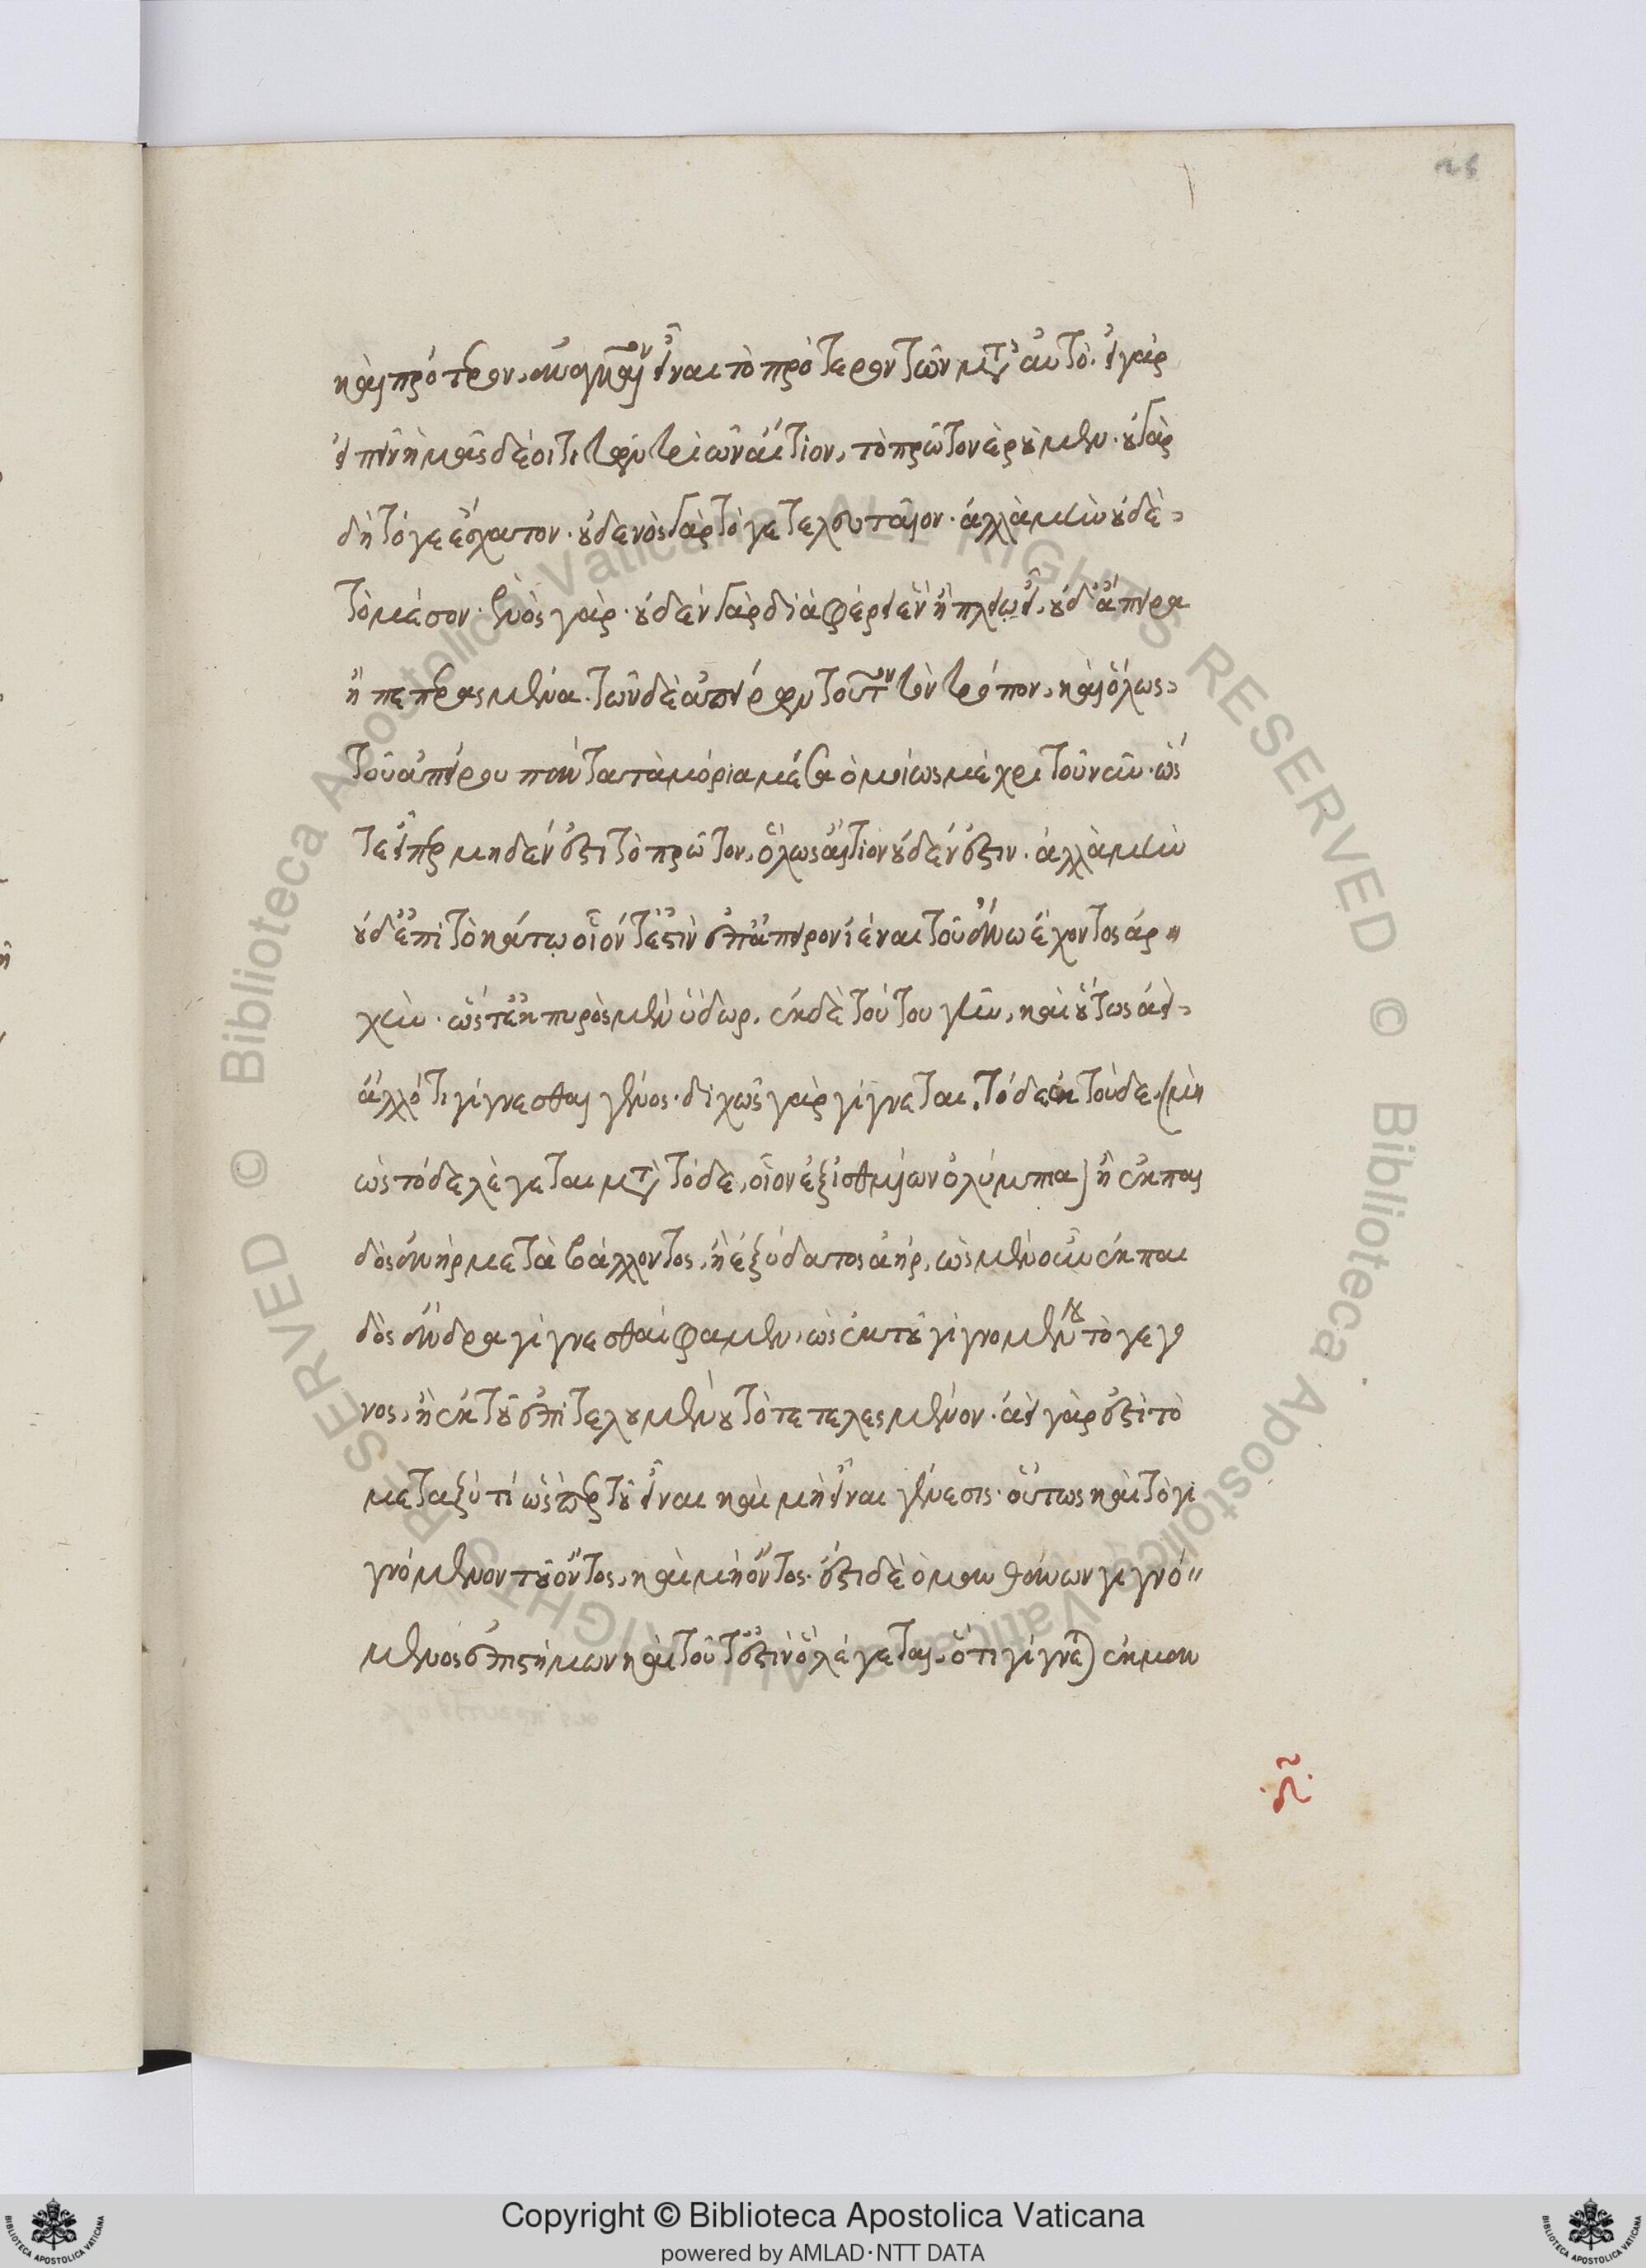 καὶ πρότερον, ἀναγκαῖον εἶναι τὸ πρότερον τῶν μετ' αὐτό. εἰ γὰρ
εἰπεῖν ἡμᾶς δέοι τί τῶν τριῶν αἴτιον, τὸ πρῶτον ἐροῦμεν. οὐ γὰρ
δὴ τό γε ἔσχατον. οὐδενὸς γὰρ τό γε τελευταῖον. ἀλλὰ μὴν οὐδὲ
τὸ μέσον. ἑνὸς γάρ. οὐδὲν γὰρ διαφέρει ἓν ἢ πλείω εἶ. οὐδ' ἄπειρα
ἢ πεπερασμένα. τῶν δὲ ἀπείρων τοῦτον τὸν τρόπον, καὶ ὅλως
τοῦ ἀπείρου πάντα τὰ μόρια μέσα ὁμοίως μέχρι τοῦ νῦν. ὥσ
τε εἴπερ μηδέν ἐστι τὸ πρῶτον, ὅλως αἴτιον οὐδέν ἐστιν. ἀλλὰ μὴν
οὐδ' ἐπὶ τὸ κάτω οἷόν τέ ἐστιν ἐπ' ἄπειρον ἰέναι τοῦ ἄνω ἔχοντος ἀρ
χὴν. ὥστ' ἐκ πυρὸς μὲν ὕδωρ. ἐκ δὲ τούτου γῆν, καὶ οὕτως ἀεὶ
ἄλλό τι γίγνεσθαι γένος. διχῶς γὰρ γίγνεται τόδε ἐκ τοῦδε. (μὴ
ὡς τόδε λέγεται μετὰ τόδε, οἷον ἐξ ἰσθμίων ὀλύμπια) ἢ ἐκ παι
δὸς ἀνὴρ μεταβάλλοντος, ἢ ἐξ ὕδατος ἀήρ. ὡς μὲν οὖν ἐκ παι
δὸς ἄνδρα γίγνεσθαί φαμεν, ὡς ἐκ τοῦ γιγνομένου τὸ γεγο
νος, ἢ ἐκ τοῦ ἐπιτελουμένου τὸ τετελεσμένον. ἀεὶ γάρ ἐστι τὸ
μεταξύ τί ὥσπερ τοῦ εἶναι καὶ μὴ εἶναι γένεσις. οὕτως καὶ τὸ γι
γνόμενον τοῦ ὄντος, καὶ μὴ ὄντος. ἔστι δὲ ὁ μανθάνων γιγνό
μενος ἐπιστήμων καὶ τοῦτ' ἐστὶν ὃ λέγεται, ὅτι γίγνεται ἐκ μαν
Copyright © Biblioteca Apostolica Vaticana
powered by AMLAD·NTT DATA